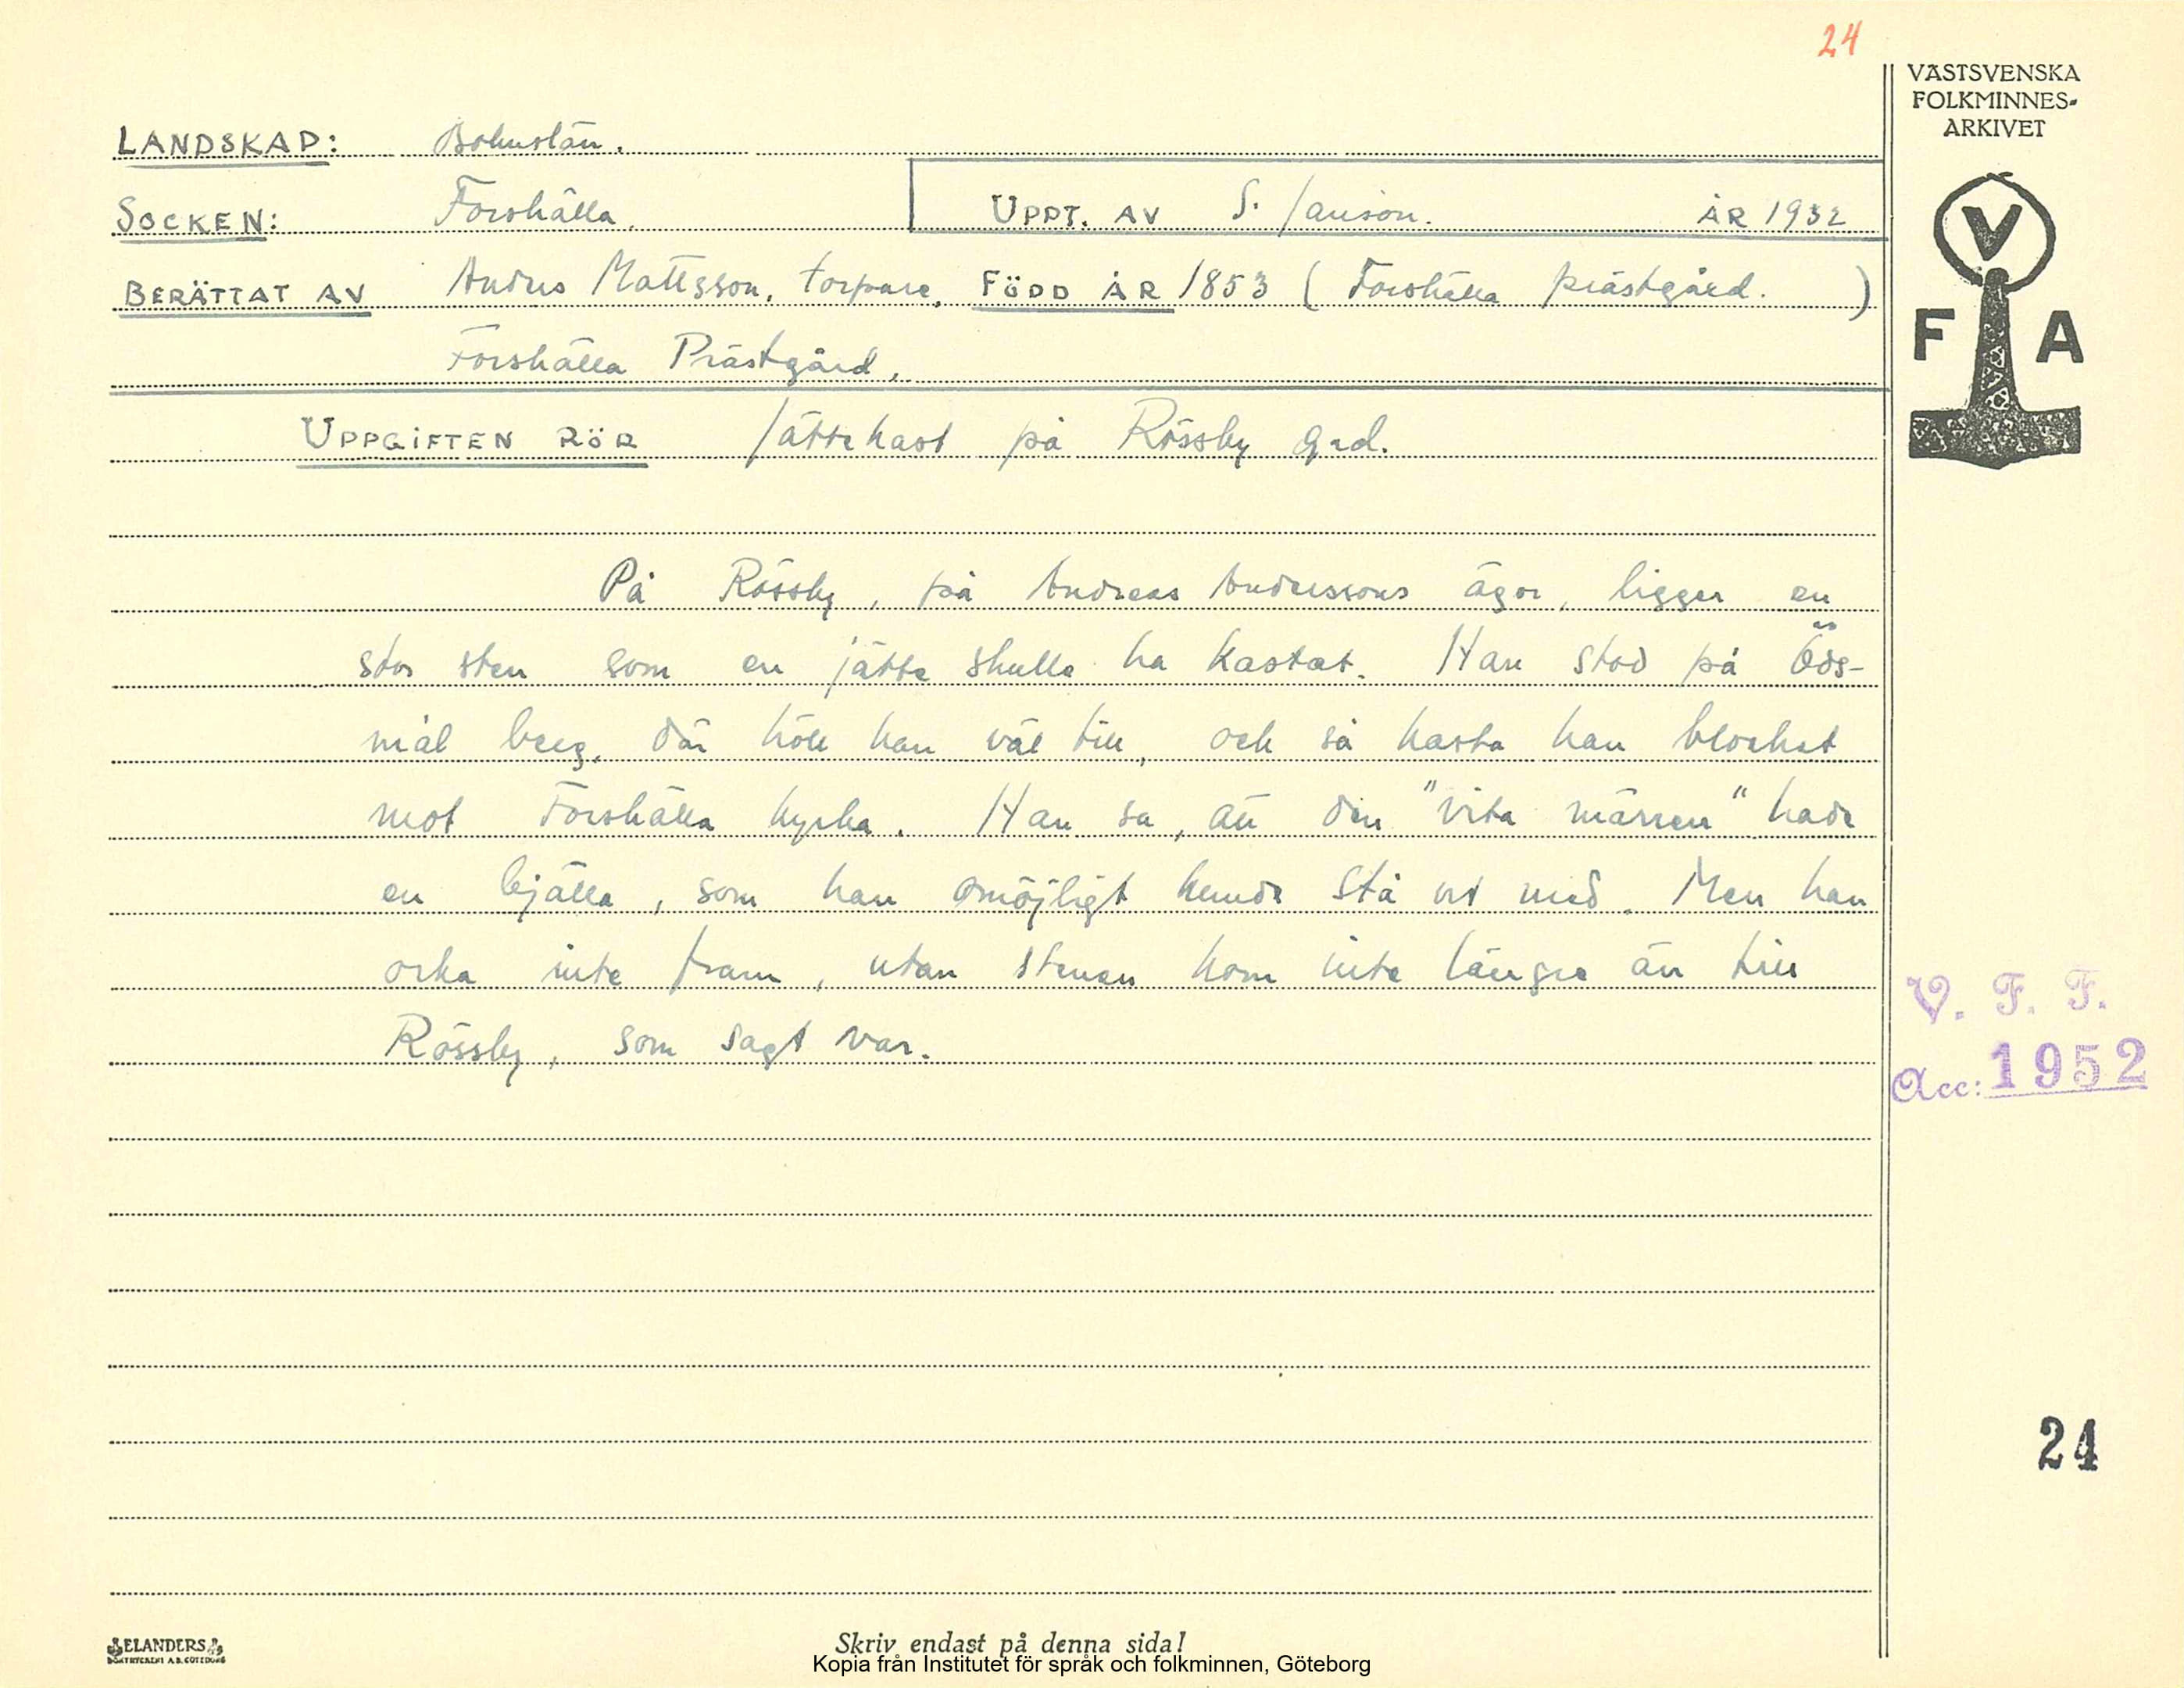 24
VÄSTSVENSKA
FOLKMINNES-
ARKIVET
LANDSKAP: Bohuslän.
SOCKEN: Forshälla. UPPT. AV S. Janson. ÅR 1932
BERÄTTAT AV Anders Mattsson, torpare, FÖDD ÅR 1853 (Forshälla prästgård.)
Forshälla Prästgård.
UPPGIFTEN RÖR Jättekast på Rössby grd.
V
F A
På Rössby, på Andreas Anderssons ägor, ligger en
stor sten som en jätte skulle ha kastat. Han stod på Öds-
mål berg, där höll han väl till, och så kasta han blocket
mot Forshälla kyrka. Han sa, att den "vita märren" hade
en bjälla, som han omöjligt kunde stå ut med. Men han
orka inte fram, utan stenen kom inte längre än till
Rössby, som sagt var.
V. F. F.
Acc: 1952
24
ELANDERS
BOKTRYCKERI A.B. GÖTEBORG
Skriv endast på denna sida!
Kopia från Institutet för språk och folkminnen, Göteborg